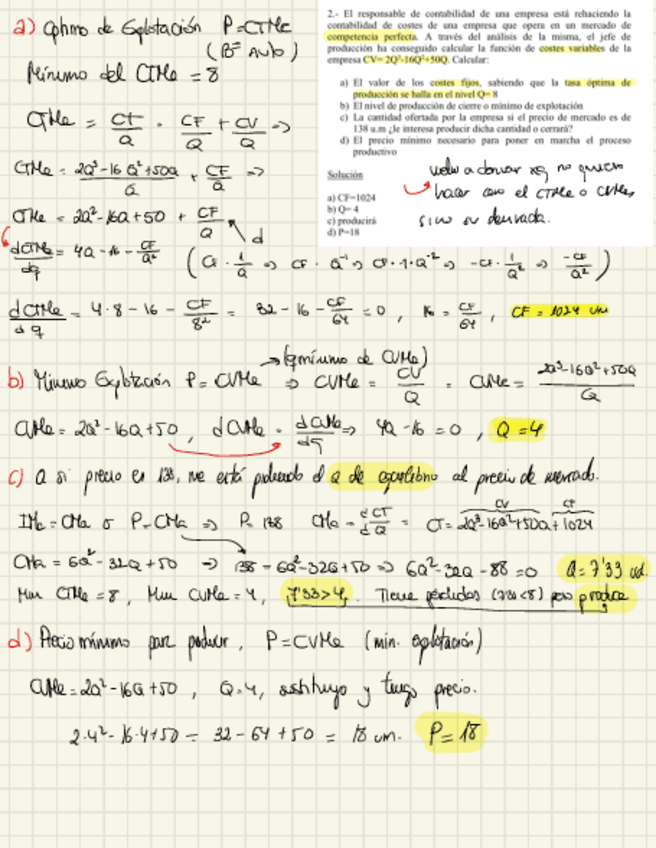 a) Óptimo de Explotación P=CTMe
(Bº = Nulo)
Mínimo del CTMe = 8
CTMe = CT/Q = CF/Q + CV/Q =>
CTMe = 2Q³-16Q²+50Q/Q + CF/Q =>
CTMe = 2Q²-16Q+50 + CF/Q
d
dCTMe/dq = 4Q-16-CF/Q² (CF·1/Q => CF·Q⁻¹ => CF·1·Q⁻² => -CF·1/Q² => -CF/Q²)
dCTMe/dq = 4·8-16-CF/8² = 32-16-CF/64 = 0, 16 = CF/64, CF = 1024 um
2.- El responsable de contabilidad de una empresa está rehaciendo la
contabilidad de costes de una empresa que opera en un mercado de
competencia perfecta. A través del análisis de la misma, el jefe de
producción ha conseguido calcular la función de costes variables de la
empresa CV= 2Q³-16Q²+50Q. Calcular:
a) El valor de los costes fijos, sabiendo que la tasa óptima de
producción se halla en el nivel Q= 8
b) El nivel de producción de cierre o mínimo de explotación
c) La cantidad ofertada por la empresa si el precio de mercado es de
138 u.m ¿le interesa producir dicha cantidad o cerrará?
d) El precio mínimo necesario para poner en marcha el proceso
productivo
Solución
a) CF=1024
b) Q= 4
c) producirá
d) P=18
vuelvo a derivar xq no quiero
hacer con el CTMe o CVMe,
sino su derivada.
b) Mínimo Explotación P = CVMe => CVMe = CV/Q = CVMe = 2Q³-16Q²+50Q/Q
(mínimo de CVMe)
CVMe = 2Q²-16Q+50, dCVMe = dCVMe/dq => 4Q-16 = 0, Q=4
c) Q si precio es 138, me está pidiendo el Q de equilibrio al precio de mercado.
IMa = CMa o P=CMa => P=138 CMa = dCT/dQ = CT = 2Q³-16Q²+50Q+1024
CV CF
CMa = 6Q²-32Q+50 => 138 = 6Q²-32Q+50 => 6Q²-32Q-88=0 Q=7'33 ud.
Min CTMe = 8, Min CVMe = 4, 7'33>4, Tiene pérdidas (7'33<8) pero produce
d) Precio mínimo para producir, P=CVMe (min. explotación)
CVMe = 2Q²-16Q+50, Q=4, sustituyo y tengo precio.
2·4²-16·4+50 = 32-64+50 = 18 um. P=18